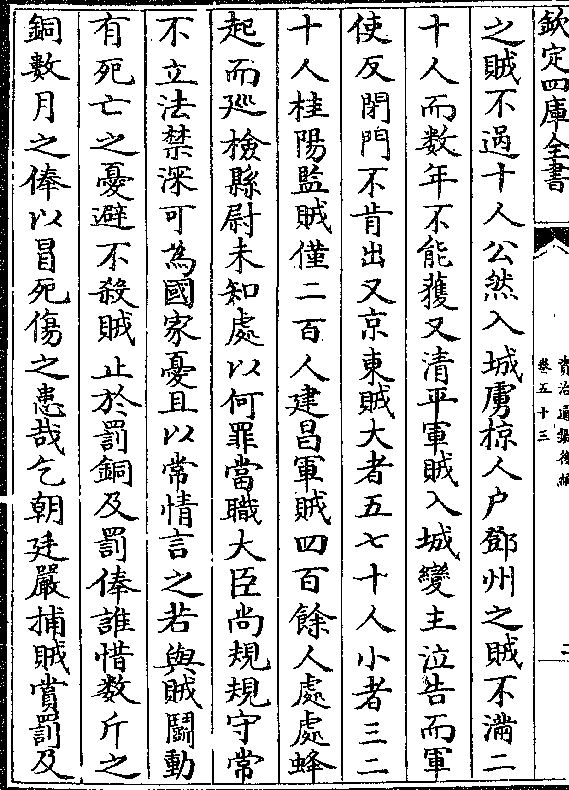 欽定四庫全書
資治通鑑後編
卷五十三
二
之賊不過十人公然入城虜掠人户鄧州之賊不滿二
十人而数年不能獲又清平軍賊入城變主泣告而軍
使反閉門不肯出又京東賊大者五七十人小者三二
十人桂陽監賊僅二百人建昌軍賊四百餘人處處蜂
起而廵檢縣尉未知處以何罪當職大臣尚規規守常
不立法禁深可為國家憂且以常情言之若與賊鬭動
有死亡之憂避不殺賊止於罰銅及罰俸誰惜数斤之
銅數月之俸以冒死傷之患哉乞朝廷嚴捕賊賞罰及